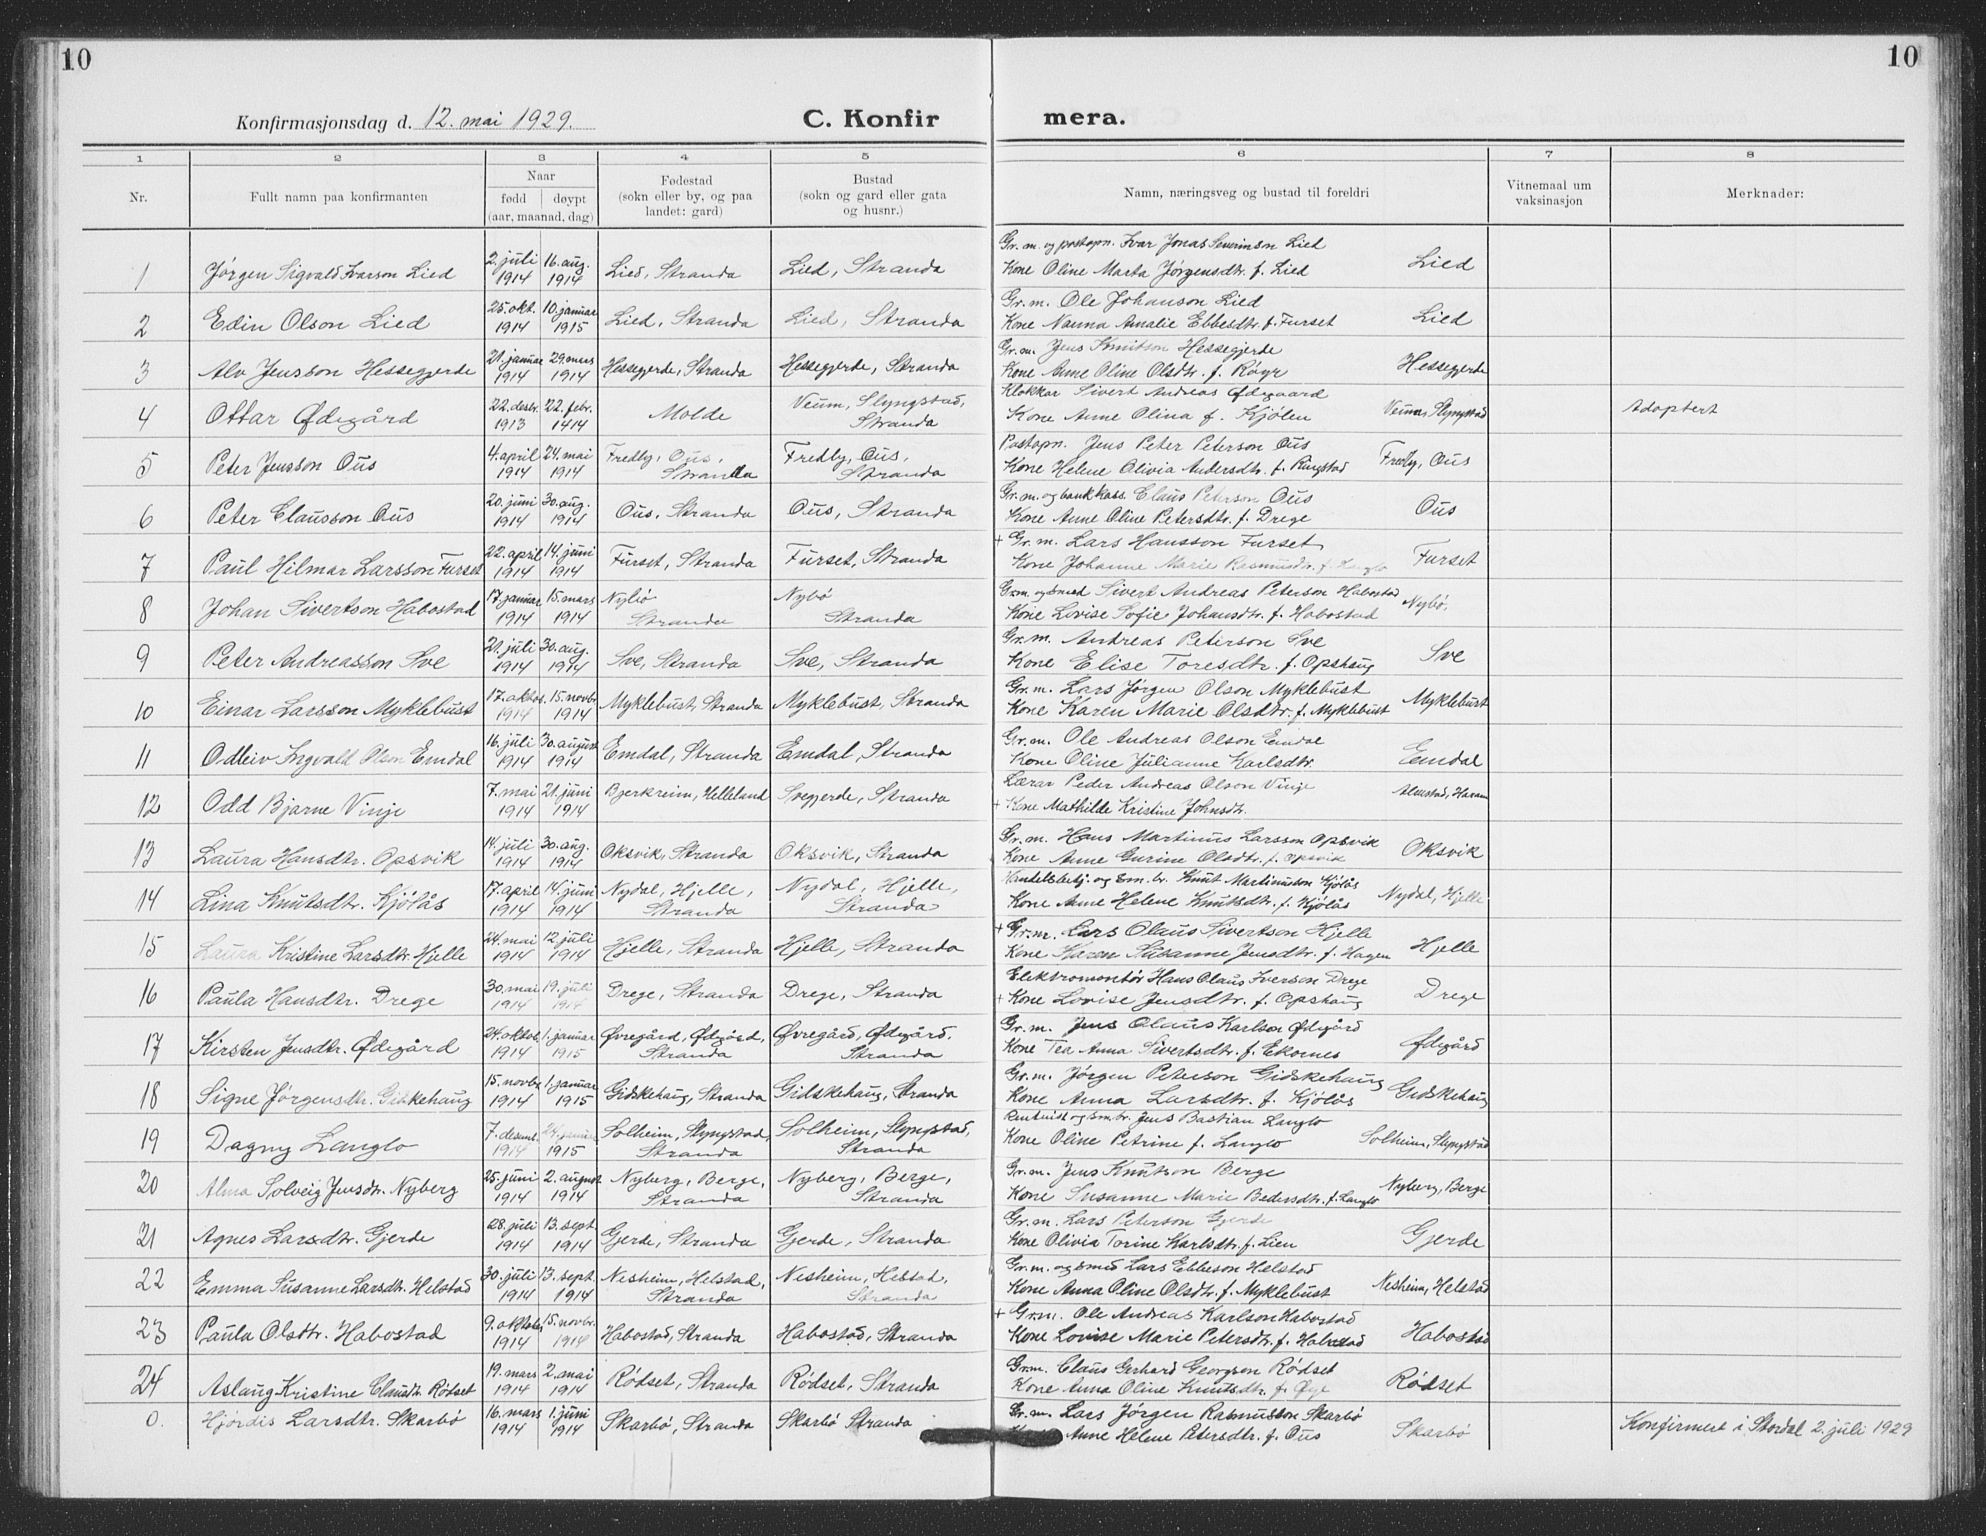 10
10
Konfirmasjonsdag d. 12. mai 1929.
C. Konfir
mera.
1 2 3 4 5 6 7 8
Nr.
Fullt namn paa konfirmanten
Naar
født døypt
(aar, maanad, dag)
Fødestad
(sokn eller by, og paa
landet: gard)
Bustad
(sokn og gard eller gata
og husnr.)
Namn, næringsveg og bustad til foreldri
Vitnemaal um
vaksinasjon
Merknader:
2. juli 16. aug. Gr. m. og postopn. Ivar Jonas Severinson Lied
1 Jørgen Sigvald Ivarson Lied 1914 1914 Lied, Stranda Lied, Stranda Kone Oline Marta Jørgensdtr. f. Lied Lied
25. okt. 10. januar Gr. m. Ole Johanson Lied
2 Edin Olson Lied 1914 1915 Lied, Stranda Lied, Stranda Kone Nanna Amalie Ebbesdtr. f. Furset Lied
21. januar 29. mars Gr. m. Jens Knutson Hessegjerde
3 Alv Jensson Hessegjerde 1914 1914 Hessegjerde, Stranda Hessegjerde, Stranda Kone Anne Oline Olsdtr. f. Røyr Hessegjerde
22. desbr. 22. febr. Veum, Slyngstad, Klokkar Sivert Andreas Ødegaard
4 Ottar Ødegård 1913 1414 Molde Stranda Kone Anne Olina f. Kjølen Veum, Slyngstad Adoptert
4. april 24. mai Fredly, Ous, Fredby, Ous, Postopn. Jens Peter Peterson Ous
5 Peter Jensson Ous 1914 1914 Stranda Stranda Kone Helene Olivia Andersdtr. f. Ringstad Fredly, Ous
20. juni 30. aug. Gr. m. og bankkass. Claus Peterson Ous
6 Peter Clausson Ous 1914 1914 Ous, Stranda Ous, Stranda Kone Anne Oline Petersdtr. f. Drege Ous
22. april 14. juni + Gr. m. Lars Hansson Furset
7 Paul Hilmar Larsson Furset 1914 1914 Furset, Stranda Furset, Stranda Kone Johanne Marie Rasmusdtr. f. Langlo Furset
17. januar 15. mars Nybø Nybø Grm. og smed Sivert Andreas Peterson Habostad
8 Johan Sivertson Habostad 1914 1914 Stranda Stranda Kone Lovise Sofie Johansdtr. f. Habostad Nybø.
21. juli 30. aug. Gr. m. Andreas Peterson Sve
9 Peter Andreasson Sve 1914 1914 Sve, Stranda Sve, Stranda Kone Elise Toresdtr. f. Opshaug Sve
17. oktob. 15. novbr. Gr. m. Lars Jørgen Olson Myklebust
10 Einar Larsson Myklebust 1914 1914 Myklebust, Stranda Myklebust, Stranda Kone Karen Marie Olsdtr. f. Myklebust Myklebust
16. juli 30. august Gr. m. Ole Andreas Olson Emdal
11 Odleiv Ingvald Olson Emdal 1914 1914 Emdal, Stranda Emdal, Stranda Kone Oline Julianne Karlsdtr. Emdal
7. mai 21. juni Lærar Peder Andreas Olson Vinje
12 Odd Bjarne Vinje 1914 1914 Bjerkreim, Helleland Svegjerde, Stranda + Kone Mathilde Kristine Johnsdtr. Almstad, Haram
14. juli 30. aug. Gr. m. Hans Martinus Larsson Opsvik
13 Laura Hansdtr. Opsvik 1914 1914 Oksvik, Stranda Oksvik, Stranda Kone Anne Gurine Olsdtr. f. Opsvik Oksvik
17. april 14. juni Nydal, Hjelle, Nydal, Hjelle, Handelsbetj. og sm. br. Knut Martinusson Kjølås
14 Lina Knutsdtr. Kjølås 1914 1914 Stranda Stranda Kone Anne Helene Knutsdtr. f. Kjølås Nydal, Hjelle
24. mai 12. juli + Gr. m. Lars Olaus Sivertson Hjelle
15 Laura Kristine Larsdtr. Hjelle 1914 1914 Hjelle, Stranda Hjelle, Stranda Kone Karen Susanne Jensdtr. f. Hagen Hjelle
30. mai 19. juli Elektromontør Hans Olaus Iverson Drege
16 Paula Hansdtr. Drege 1914 1914 Drege, Stranda Drege, Stranda + Kone Lovise Jensdtr. f. Opshaug Drege
24. oktob. 1. januar Øvregård, Ødegård, Øvregård, Ødegård, Gr. m. Jens Olaus Karlson Ødegård
17 Kirsten Jensdtr. Ødegård 1914 1915 Stranda Stranda Kone Tea Anna Sivertsdtr. f. Ekornes Ødegård
15. novbr. 1. januar Gr. m. Jørgen Peterson Gidskehaug
18 Signe Jørgensdtr. Gidskehaug 1914 1915 Gidskehaug, Stranda Gidskehaug, Stranda Kone Anna Larsdtr. f. Kjølås Gidskehaug
7. desemb. 24. januar Solheim, Slyngstad, Solheim, Slyngstad, og sm. br. Jens Bastian Langlo
19 Dagny Langlo 1914 1915 Stranda Stranda Kone Oline Petrine f. Langlo Solheim, Slyngstad
25. juni 2. august Nyberg, Berge, Nyberg, Berge, Gr. m. Jens Knutson Berge
20 Alma Solveig Jensdtr. Nyberg 1914 1914 Stranda Stranda Kone Susanne Marie Pedersdtr. f. Langlo Nyberg, Berge
28. juli 13. sept. Gr. m. Lars Peterson Gjerde
21 Agnes Larsdtr. Gjerde 1914 1914 Gjerde, Stranda Gjerde, Stranda Kone Olivia Torine Karlsdtr. f. Lien Gjerde
30. juli 13. sept. Nesheim, Helstad, Nesheim, Helstad, Gr. m. og smed Lars Ebbeson Helstad
22 Emma Susanne Larsdtr. Helstad 1914 1914 Stranda Stranda Kone Anna Oline Olsdtr. f. Myklebust Nesheim, Helstad
9. oktober 15. novbr. + Gr. m. Ole Andreas Karlson Habostad
23 Paula Olsdtr. Habostad 1914 1914 Habostad, Stranda Habostad, Stranda Kone Lovise Marie Petersdtr. f. Habostad Habostad
19. mars 2. mai Gr. m. Claus Gerhard Georgson Rødset
24 Aslaug Kristine Clausdtr. Rødset 1914 1914 Rødset, Stranda Rødset, Stranda Kone Anna Oline Knutsdtr. f. Øye Rødset
16. mars 1. juni Gr. m. Lars Jørgen Rasmusson Skarbø
0. Hjørdis Larsdtr. Skarbø 1914 1914 Skarbø, Stranda Skarbø Stranda Anne Helene Petersdtr. f. Ous Skarbø Konfirmert i Stordal 2. juli 1929